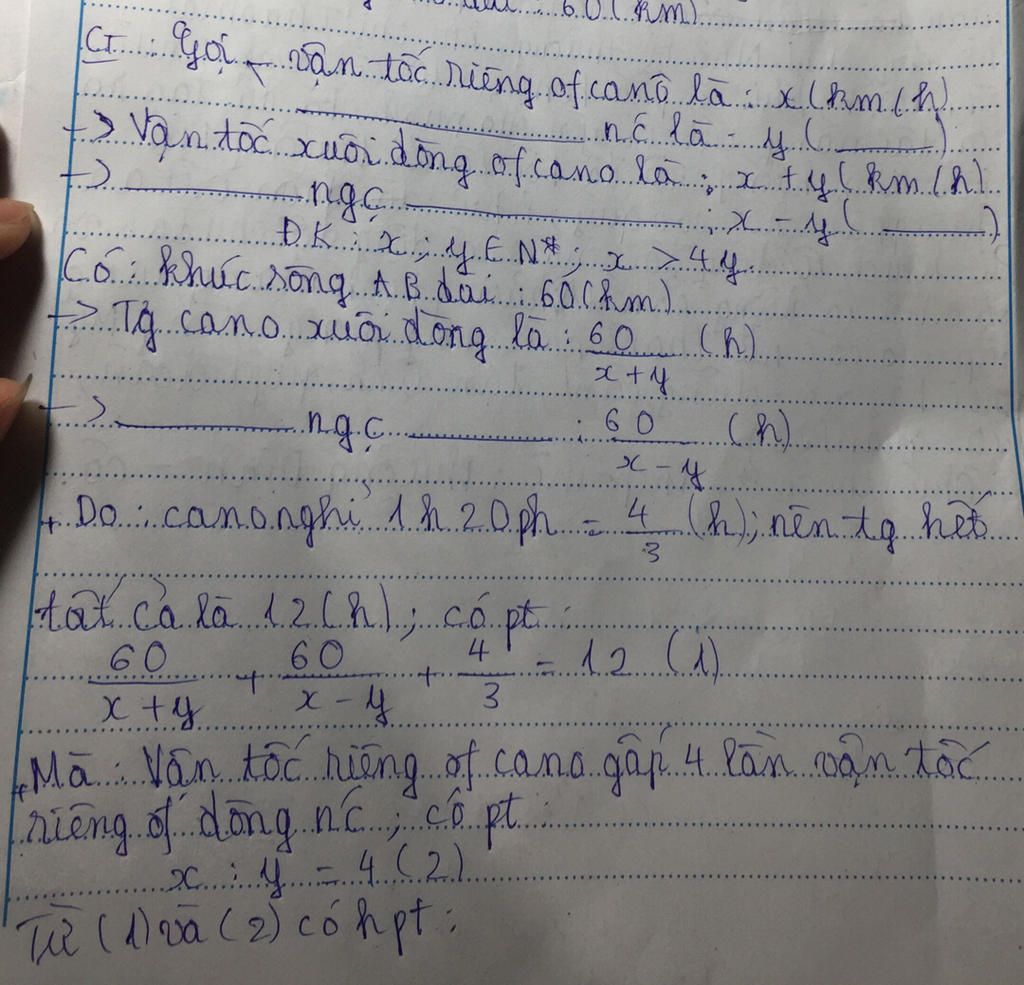 60 (km)
GI : Gọi vận tốc riêng of canô là : x (km/h)
nc là : y ( )
-> Vận tốc xuôi dòng of cano là : x + y (km/h)
-> ngc : x - y ( )
ĐK : x ; y ∈ N* ; x > 4y
Có : khúc sông AB dài : 60 (km)
-> Tg cano xuôi dòng là : 60/(x+y) (h)
-> ngc : 60/(x-y) (h)
+ Do : cano nghỉ 1h20ph = 4/3 (h) ; nên tg hết
tất cả là 12 (h) ; có pt :
60/(x+y) + 60/(x-y) + 4/3 = 12 (1)
+ Mà : Vận tốc riêng of cano gấp 4 lần vận tốc
riêng of dòng nc ; có pt :
x : y = 4 (2)
Từ (1) và (2) có hpt :